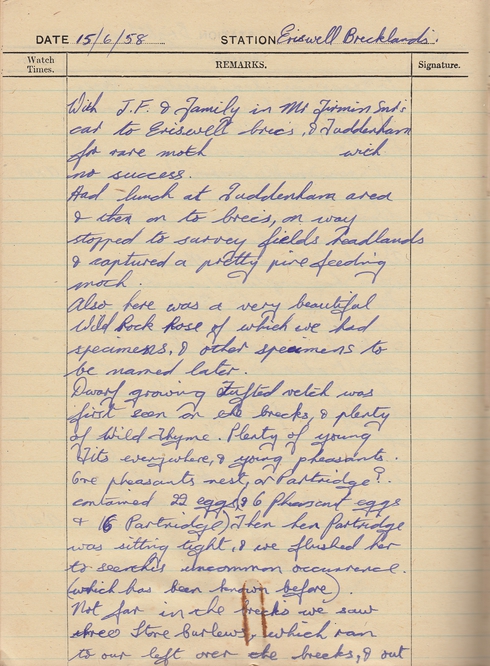 DATE 15/6/58 STATION Eriswell Brecklands.
Watch Times. REMARKS. Signature.
With J.F. & Family in Mr Firmin Snr's
car to Eriswell brecs, & Tuddenham
for rare moth with
no success.
Had lunch at Tuddenham area
& then on to brecs, on way
stopped to survey fields headlands
& captured a pretty pine feeding
moth.
Also here was a very beautiful
Wild Rock Rose of which we had
specimens, & other specimens to
be named later.
Dwarf growing Tufted vetch was
first seen on the brecks, & plenty
of Wild Thyme. Plenty of young
Tits everywhere, & young pheasants.
One pheasants nest, or Partridge?
contained 22 eggs (& 6 Pheasant eggs
& 16 Partridge) Then hen Partridge
was sitting tight, & we flushed her
to see this uncommon occurrence.
(which has been known before).
Not far in the brecks we saw
three Stone Curlews, which ran
to our left over the brecks, & out